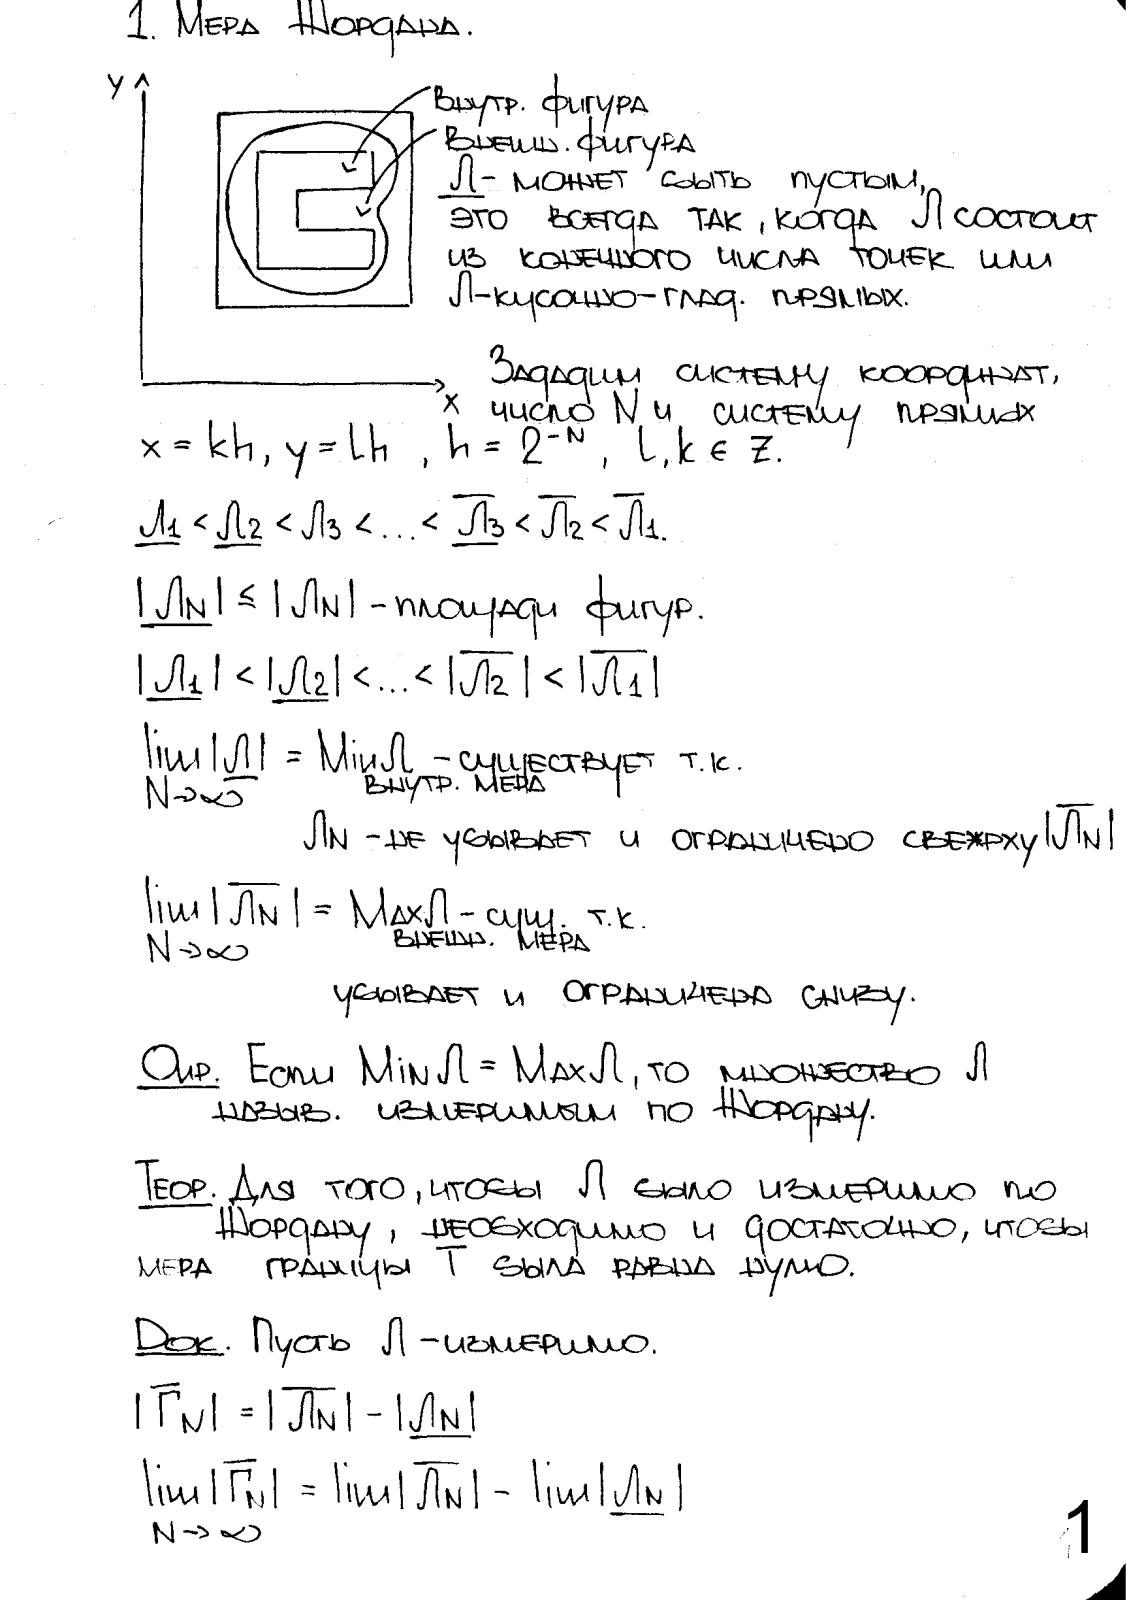 1. Мера Жордана.
y
внутр. фигура
внешн. фигура
Л - может быть пустым,
это всегда так, когда Л состоит
из конечного числа точек или
Л-кусочно-глад. прямых.
x
Зададим систему координат,
число N и систему прямых
x = kh, y = lh , h = 2^{-N}, l, k ∈ Z.
Л̲1 < Л̲2 < Л3 < ... < Л̅3 < Л̅2 < Л̅1.
|Л̲N| ≤ |ЛN| - площади фигур.
|Л̲1| < |Л̲2| < ... < |Л̅2| < |Л̅1|
lim |Л̲| = MinЛ - существует т.к.
N→∞ внутр. мера
ЛN - не убывает и ограничено сверху |Л̅N|
lim |Л̅N| = MaxЛ - сущ. т.к.
N→∞ внешн. мера
убывает и ограничена снизу.
Опр. Если MinЛ = MaxЛ, то множество Л
назыв. измеримым по Жордану.
Теор. Для того, чтобы Л было измеримо по
Жордану, необходимо и достаточно, чтобы
мера границы Г была равна нулю.
Док. Пусть Л - измеримо.
|Г̅N| = |Л̅N| - |Л̲N|
lim |Г̅N| = lim |Л̅N| - lim |Л̲N|
N→∞
1